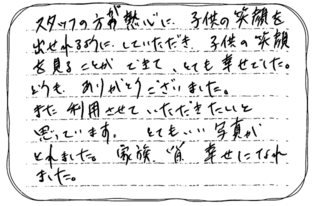 スタッフの方が熱心に、子供の笑顔を
出せれるように、していただき、子供の笑顔
を見ることができて、とても幸せでした。
どうも ありがとうございました。
また利用させていただきたいと
思っています。 とてもいい写真が
とれました。 家族 皆 幸せになれ
ました。